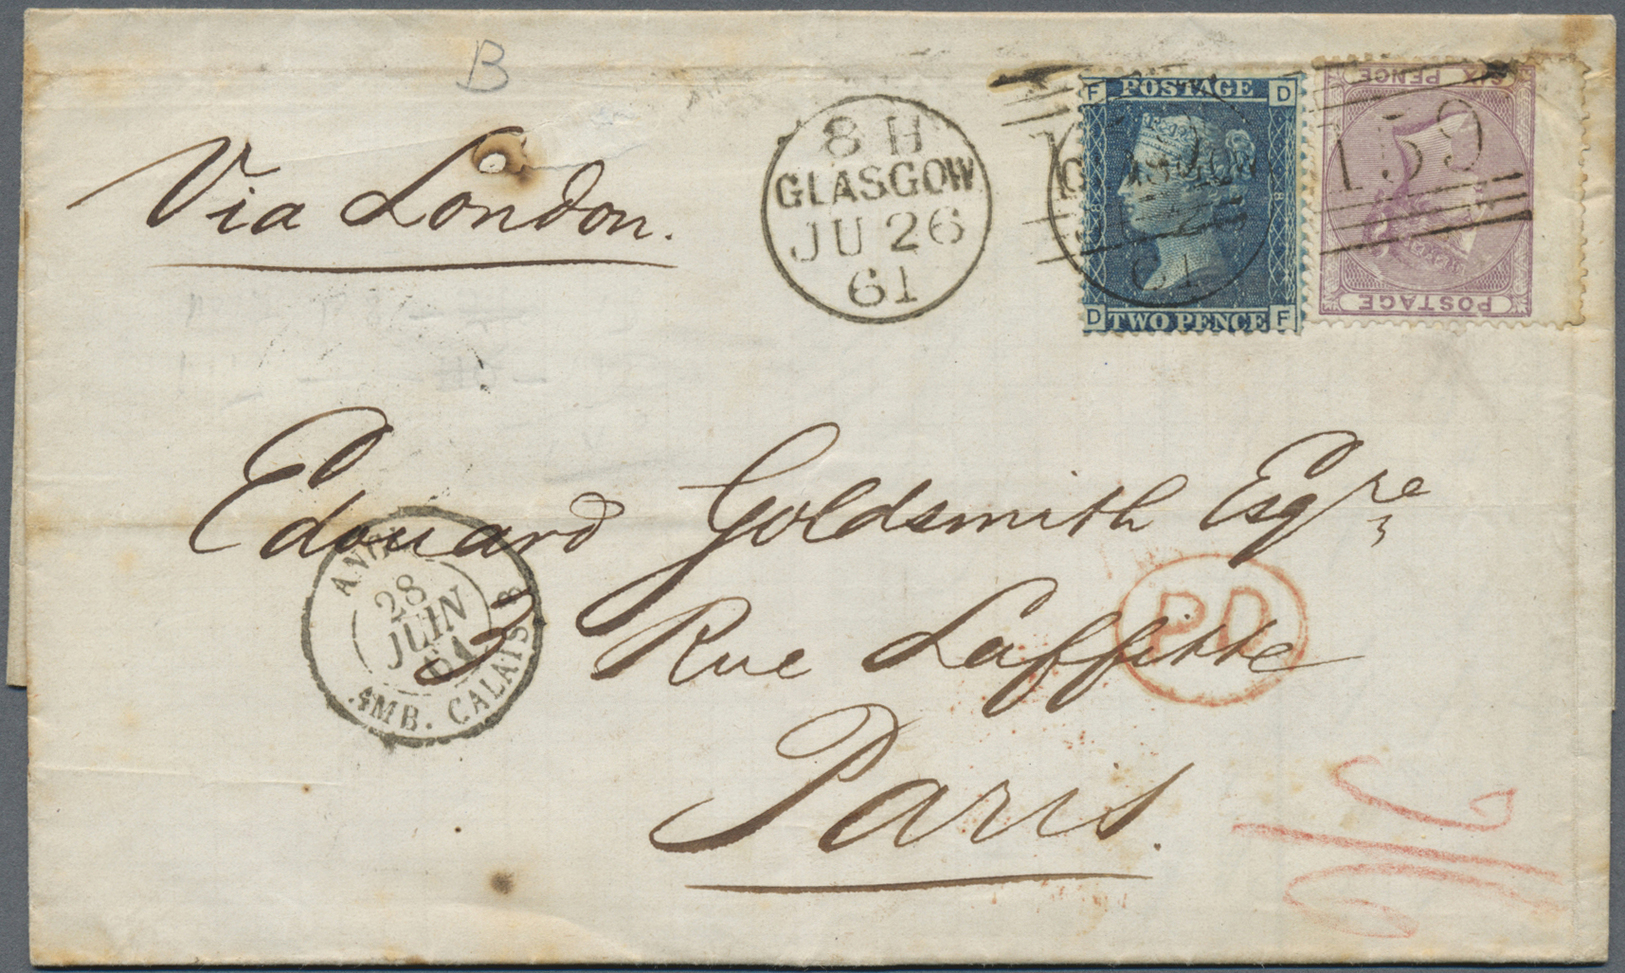 B
Via London.
8 H
GLASGOW
JU 26
61
F POSTAGE D
D TWO PENCE F
GLASGOW
61
159
SIX PENCE
POSTAGE
Edouard Goldsmith Esqre
3 Rue Laffitte
Paris.
PD
28
JUIN
61
AMB. CALAIS B